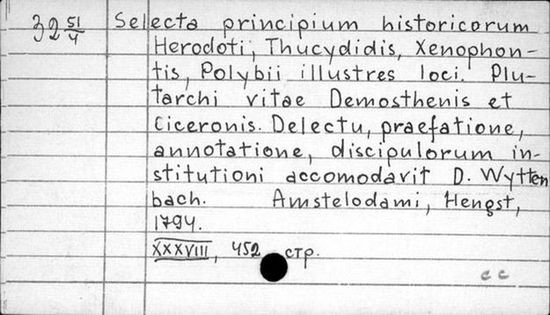 32 51/4
Selecta principium historicorum
Herodoti, Thucydidis, Xenophon-
tis, Polybii illustres loci. Plu-
tarchi vitae Demosthenis et
Ciceronis. Delectu, praefatione,
annotatione, discipulorum in-
stitutioni accomodavit D. Wytten
bach. Amstelodami, Hengst,
1794.
XXXVIII, 452 стр.
с с